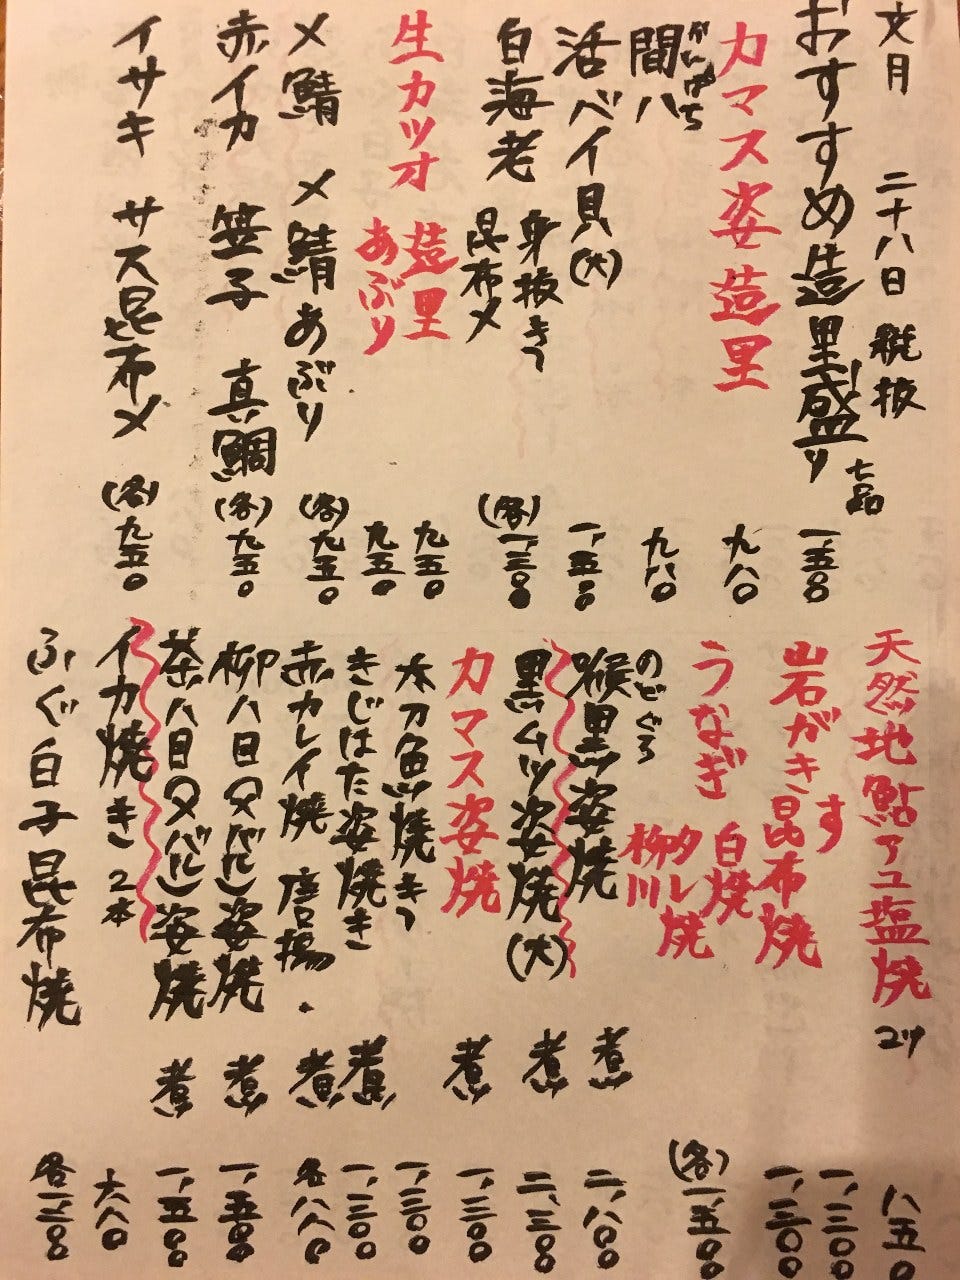 文月 二十八日 税抜
おすすめ造里盛り 七品 一、五〇〇
カマス姿造里 九八〇
間八 がんぱち 九八〇
活ベイ貝(大) 一、五〇〇
白海老 身抜き 昆布〆 (各)一、三〇〇
生カツオ 造里 九五〇
あぶり 九五〇
〆鯖 〆鯖あぶり (各)九五〇
赤イカ 笹子 真鯛 (各)九五〇
イサキ サス昆布〆 (各)九五〇
天然地鮎アユ塩焼 2ケ 八五〇
岩がき す 一、三〇〇
昆布焼 一、三〇〇
うなぎ 白焼 タレ焼 柳川 (各)一、五〇〇
喉黒姿焼 のどぐろ 煮 二、八〇〇
黒ムツ姿焼(大) 煮 二、三〇〇
カマス姿焼 煮 一、三〇〇
太刀魚焼き 一、三〇〇
きじはた姿焼き 煮 一、三〇〇
赤カレイ焼 唐揚 煮 各八八〇
柳八目(メバル)姿焼 煮 一、五〇〇
茶八目(メバル)姿焼 煮 一、五〇〇
イカ焼き 2本 六八〇
ふぐ白子昆布焼 各一、三〇〇